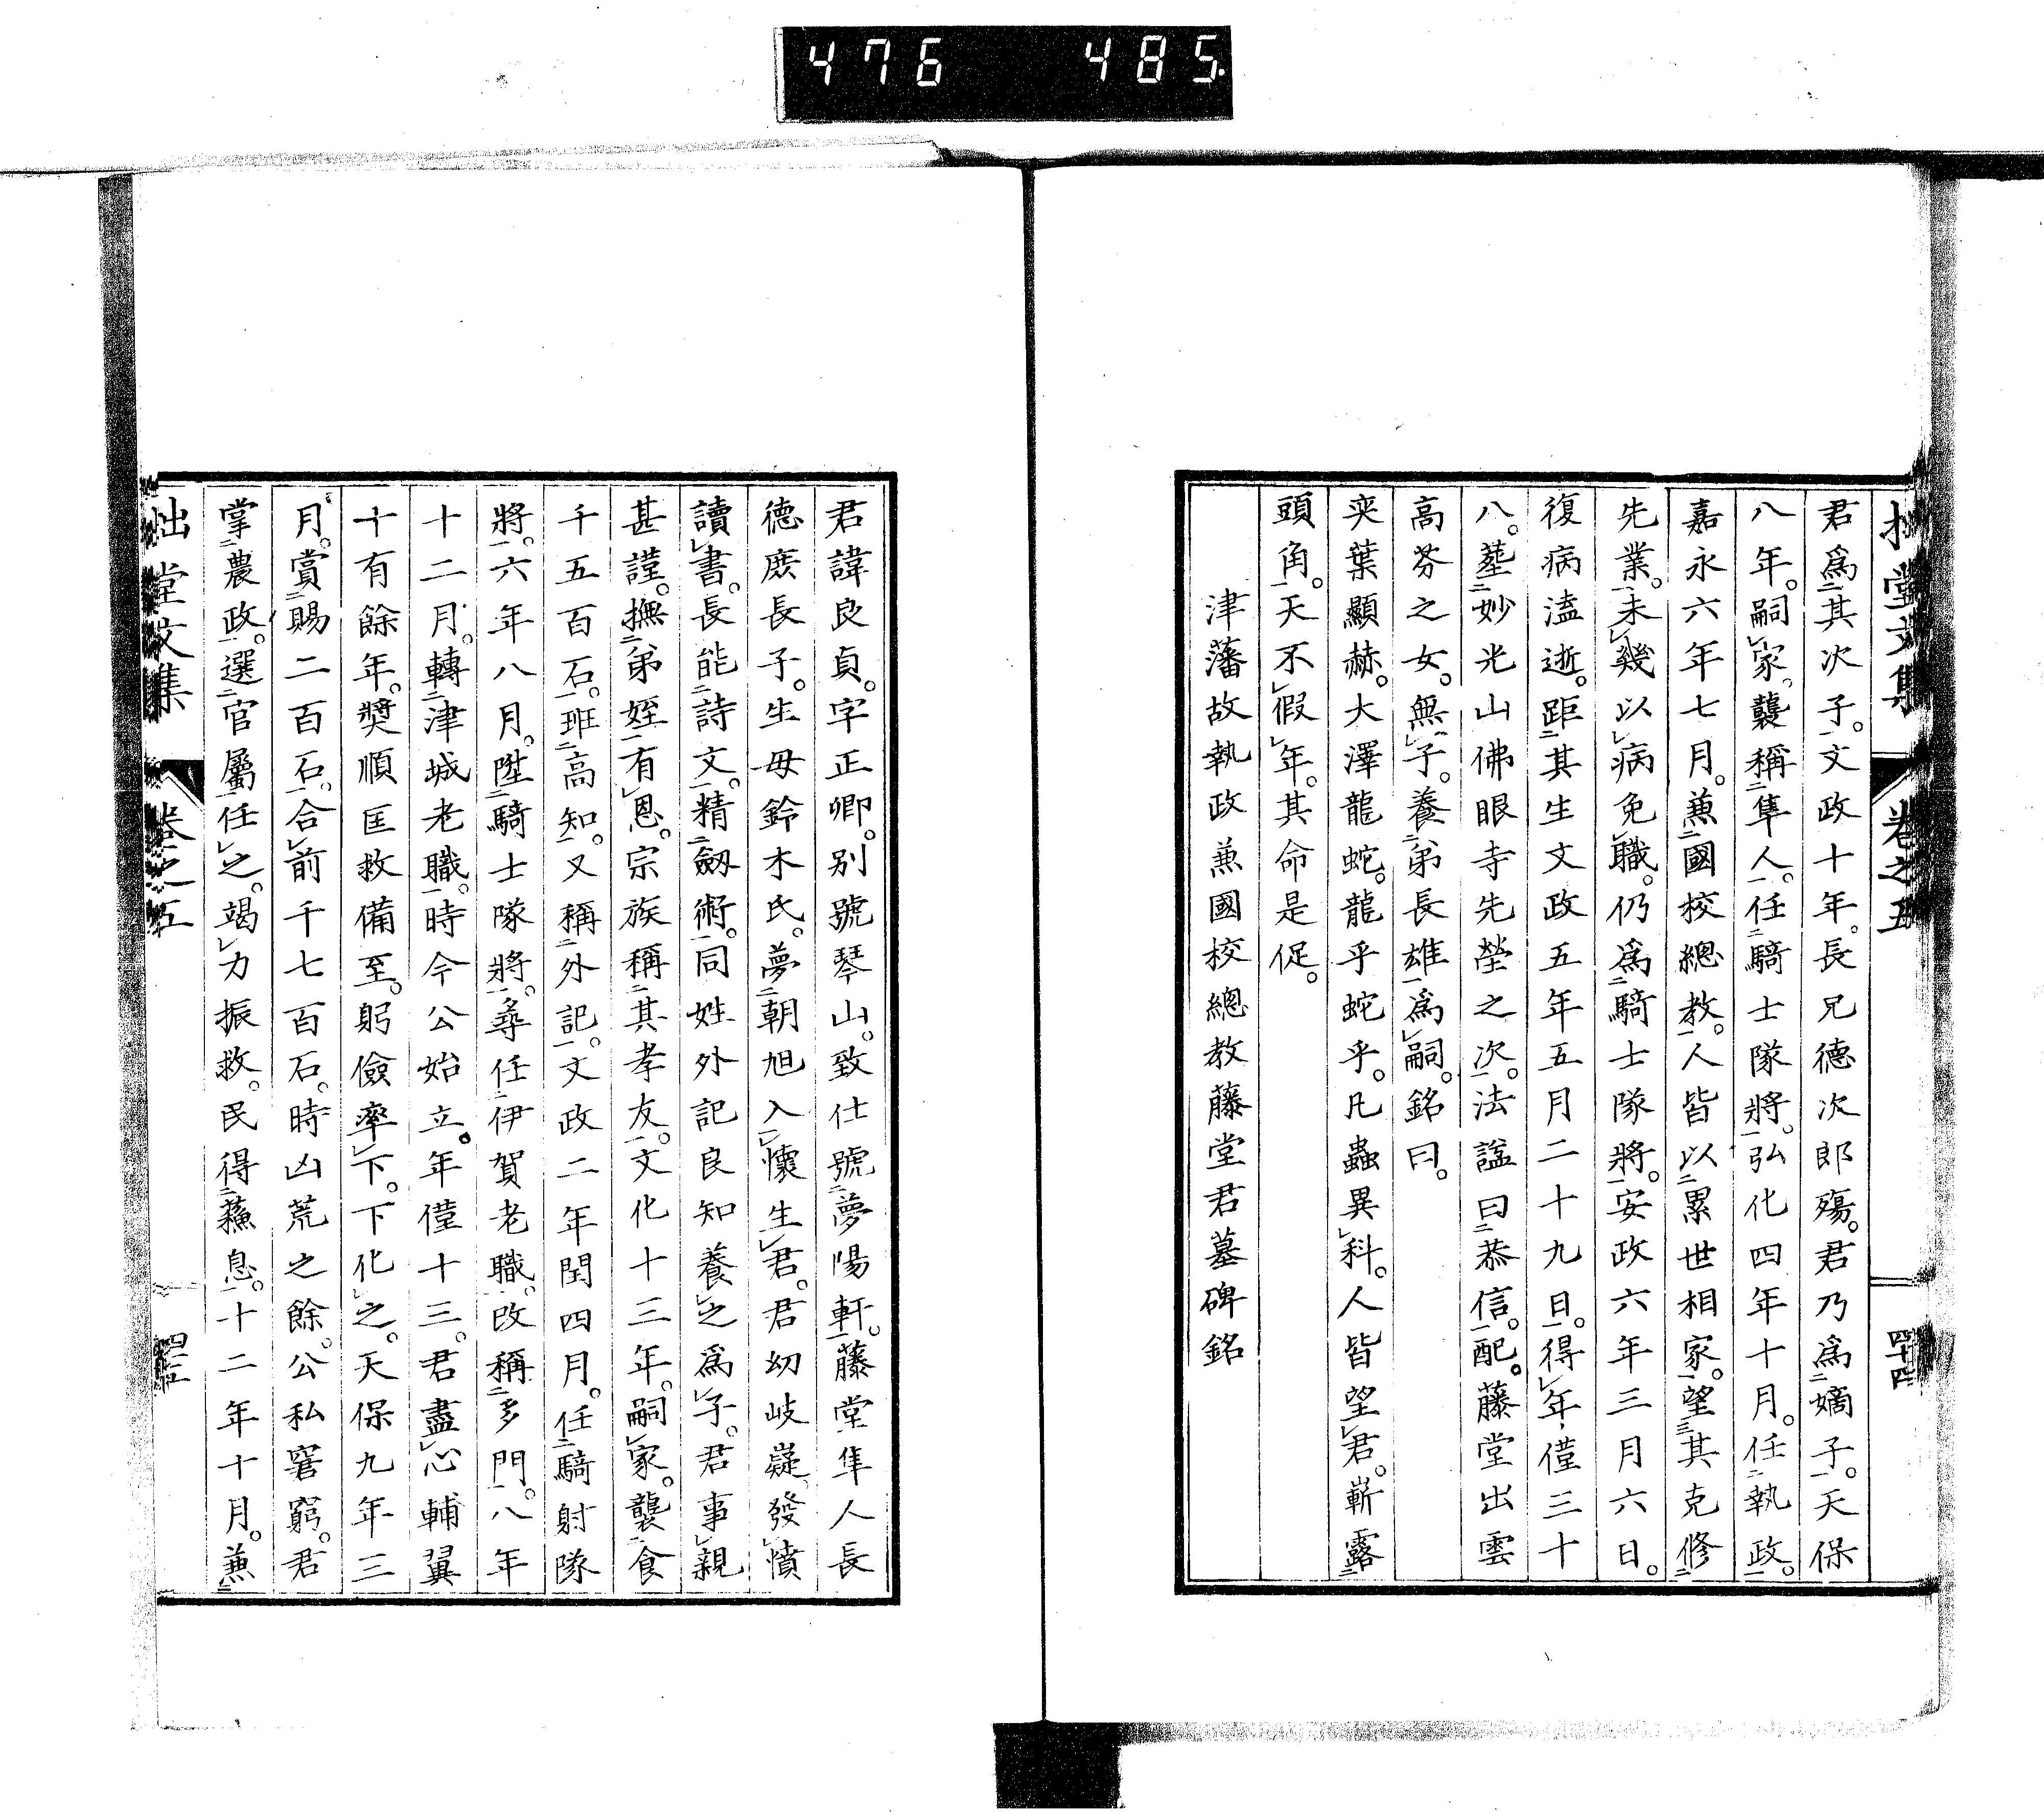 476 485
拙堂文集 卷之五 四十四
君爲二其次子一。文政十年。長兄德次郎殤。君乃爲二嫡子一。天保
八年。嗣レ家。襲稱二隼人一。任二騎士隊將一。弘化四年十月。任二執政一。
嘉永六年七月。兼二國校總教一。人皆以二累世相家一。望三其克修二
先業一。未レ幾以レ病免レ職。仍爲二騎士隊將一。安政六年三月六日。
復病溘逝。距二其生文政五年五月二十九日一。得レ年僅三十
八。葬二妙光山佛眼寺先塋之次一。法諡曰二恭信一。配。藤堂出雲
高芬之女。無レ子。養二弟長雄一爲レ嗣。銘曰。
奕葉顯赫。大澤龍蛇。龍乎蛇乎。凡蟲異レ科。人皆望レ君。嶄露二
頭角一。天不レ假レ年。其命是促。
津藩故執政兼國校總教藤堂君墓碑銘
君諱良貞。字正卿。別號琴山。致仕號二夢陽軒一。藤堂隼人長
德庶長子。生母鈴木氏。夢二朝旭入一レ懷生レ君。君幼岐嶷。發レ憤
讀レ書。長能二詩文一。精二劔術一。同姓外記良知養レ之爲レ子。君事レ親
甚謹。撫二弟姪一有レ恩。宗族稱二其孝友一。文化十三年。嗣レ家。襲二食
千五百石一。班二高知一。又稱二外記一。文政二年閏四月。任二騎射隊
將一。六年八月。陞二騎士隊將一。尋任二伊賀老職一。改稱二多門一。八年
十二月。轉二津城老職一。時今公始立。年僅十三。君盡レ心輔翼
十有餘年。奬順匡救備至。躬儉率レ下。下化レ之。天保九年三
月。賞二賜二百石一。合レ前千七百石。時凶荒之餘。公私窘窮。君
掌二農政一。選二官屬一任レ之。竭レ力振救。民得二蘓息一。十二年十月。兼二
拙堂文集 卷之五